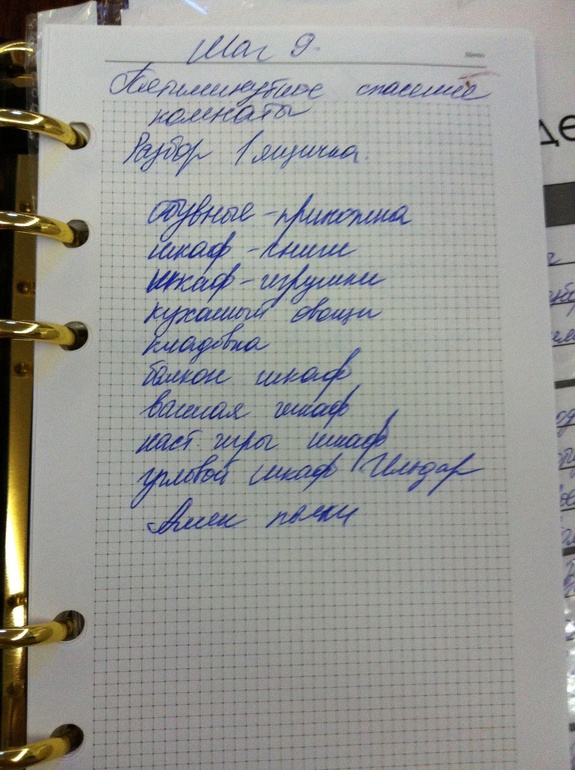 Шаг 9.
Memo
Пятиминутное спасение
комнаты
Разбор 1 ящичка.
обувные - прихожка
шкаф - книги
шкаф - игрушки
кухонный овощи
кладовка
балкон шкаф
ванная шкаф
наст. игры шкаф
угловой шкаф Ильдар
Ален полки
де